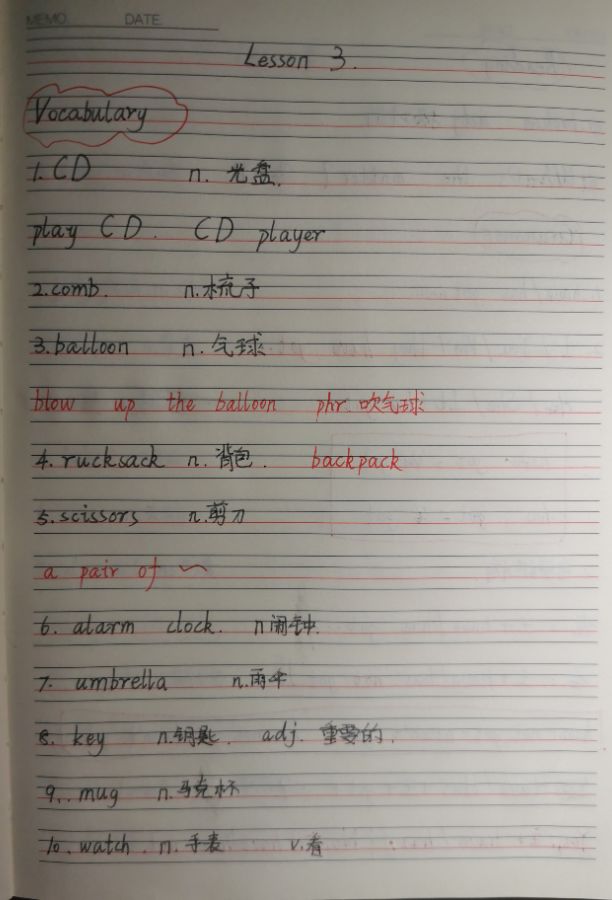 MEMO. DATE
Lesson 3.
Vocabulary
1. CD n. 光盘.
play CD. CD player
2. comb. n. 梳子
3. balloon n. 气球
blow up the balloon phr 吹气球
4. rucksack n. 背包. backpack
5. scissors n. 剪刀
a pair of ~
6. alarm clock. n 闹钟.
7. umbrella n. 雨伞
8. key n. 钥匙. adj. 重要的.
9.. mug n. 马克杯
10. watch. n. 手表 v. 看